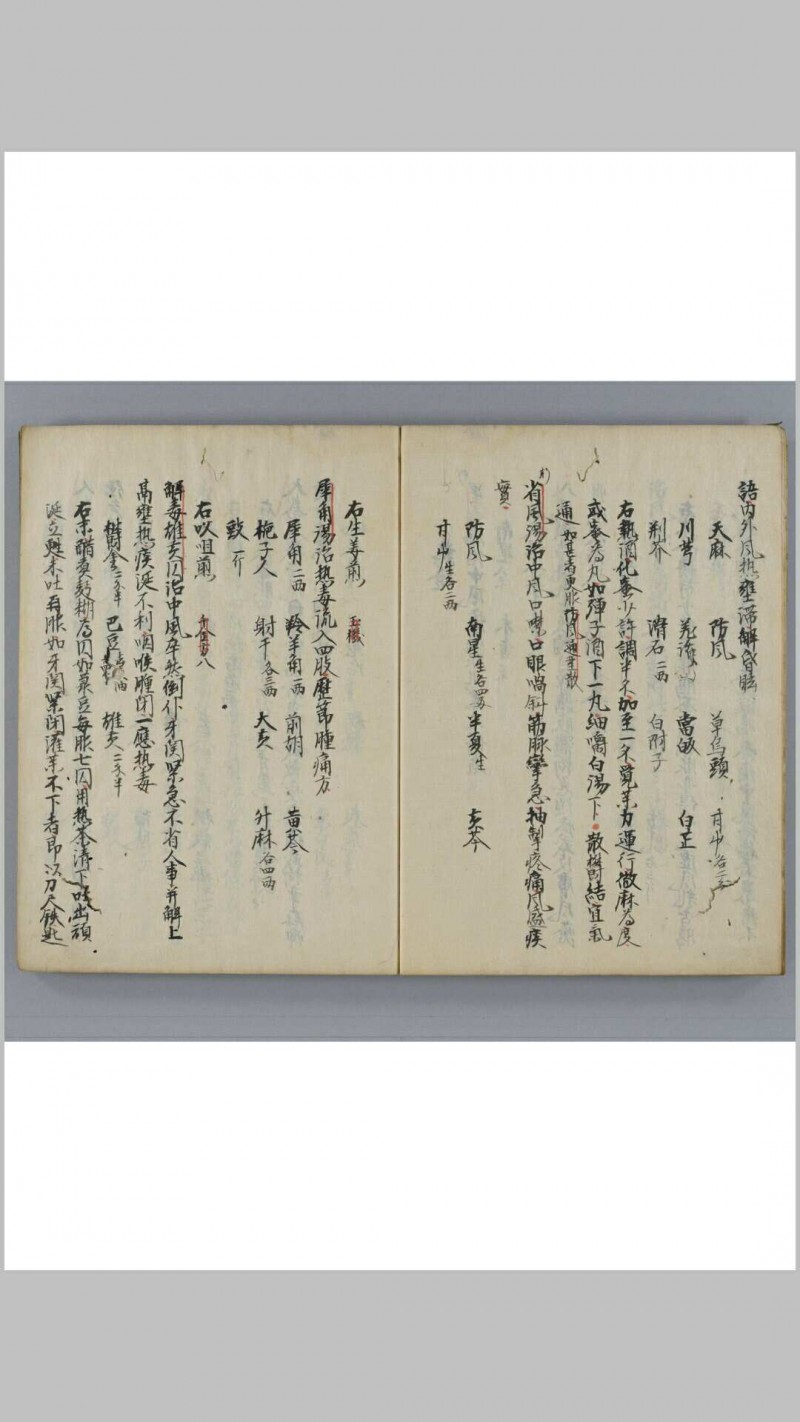 語内外風热壅滞解昏眩
天麻 防風 草烏頭 甘草各二
川芎 羌活 當皈 白芷
荆芥 滑石二両 白附子
右熱酒化蜜少許調半不加至一不覚羊力運行微麻為度
或蜜為丸如弾子酒下一丸細嚼白湯下 散欝結宣氣
通 如甚者更服防風通聖散
省風湯治中風口噤口眼喎斜筋脉攣急抽掣疼痛風盛痰
實
防風 南星生各四両 半夏生 黄芩
甘草生各二両
右生姜煎
犀角湯治熱毒流入四肢歴節腫痛方
犀角二両 羚羊角一両 前胡 黄芩
梔子人 射干各三両 大黄 升麻各四両
豉一斤
右㕮咀煎 千金方八
解毒雄黄囚治中風卒然倒仆牙関緊急不省人事并解上
髙壅热痰涎不利咽喉腫閉一應热毒
欝金二不半 巴豆 油 雄黄二不半
右末醋煮麪糊為囚如菉豆每服七囚用热茶清下 吐出頑
涎立甦未吐再服如牙関緊閉灌羊不下者即以刀尺鉄匙